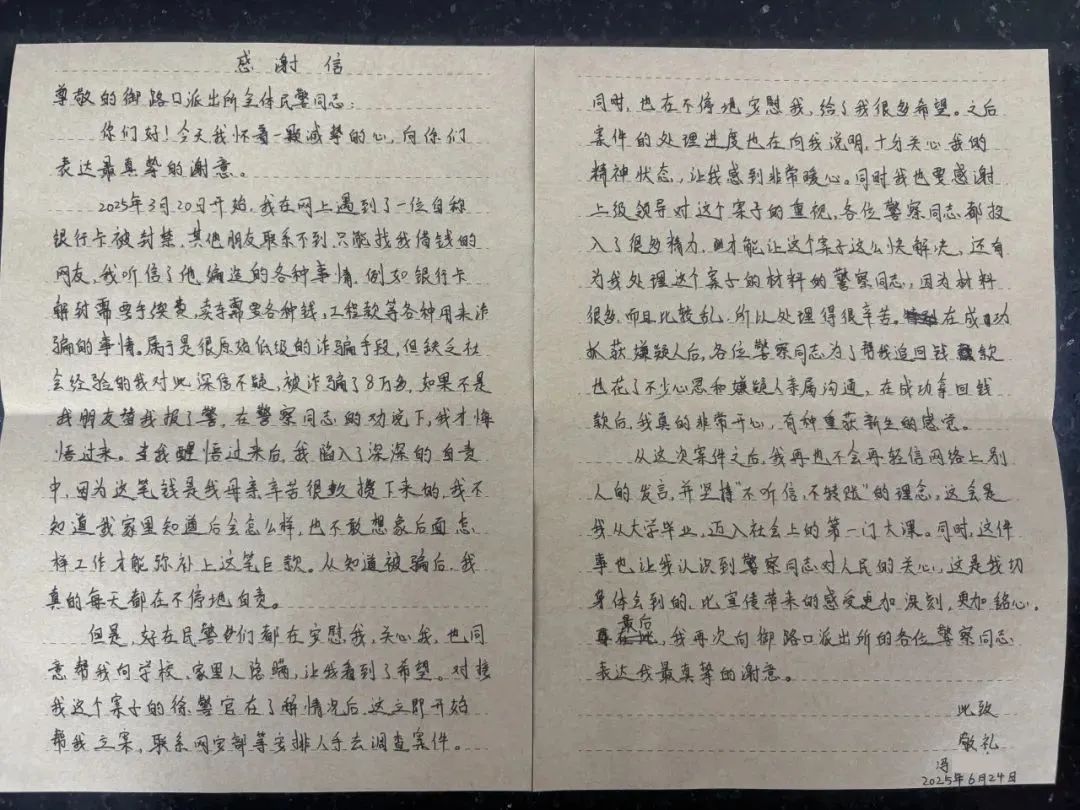 感谢信
尊敬的御路口派出所全体民警同志：
你们好！今天我怀着一颗诚挚的心，向你们
表达最真挚的谢意。
2025年3月20日开始，我在网上遇到了一位自称
银行卡被封禁，其他朋友联系不到，只能找我借钱的
网友，我听信了他编造的各种事情，例如银行卡
解封需要手续费，卖车需要各种钱，工程款等各种用来诈
骗的事情。属于是很原始低级的诈骗手段，但缺乏社
会经验的我对此深信不疑，被诈骗了8万多，如果不是
我朋友替我报了警，在警察同志的劝说下，我才悔
悟过来。当我醒悟过来后，我陷入了深深的自责
中，因为这笔钱是我母亲辛苦很数攒下来的，我不
知道我家里知道后会怎么样，也不敢想象后面怎
样工作才能弥补上这笔巨款。从知道被骗后，我
真的每天都在不停地自责。
但是，好在民警们都在安慰我，关心我，也同
意帮我向学校、家里人隐瞒，让我看到了希望。对接
我这个案子的徐警官在了解情况后，这立即开始
帮我立案，联系网安部等安排人手去调查案件。
同时，也在不停地安慰我，给了我很多希望。之后
案件的处理进度也在向我说明，十分关心我的
精神状态，让我感到非常暖心。同时我也要感谢
上级领导对这个案子的重视，各位警察同志都投
入了很多精力，才能让这个案子这么快解决，还有
为我处理这个案子的材料的警察同志，因为材料
很多，而且比较乱，所以处理得很辛苦。在成功
抓获嫌疑人后，各位警察同志为了帮我追回钱款
也花了不少心思和嫌疑人亲属沟通，在成功拿回钱
款后，我真的非常开心，有种重获新生的感觉。
从这次案件之后，我再也不会再轻信网络上别
人的发言，并坚持“不听信，不转账”的理念，这会是
我从大学毕业，迈入社会上的第一门大课。同时，这件
事也让我认识到警察同志对人民的关心，这是我切
身体会到的，比宣传带来的感受更加深刻，更加铭心。
最后，我再次向御路口派出所的各位警察同志
表达我最真挚的谢意。
此致
敬礼
冯
2025年6月24日